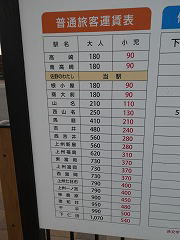 普通旅客運賃表
駅名 大人 小児
高崎 180 90
南高崎 180 90
佐野のわたし 当駅
根小屋 180 90
高商前 180 90
山名 210 110
西山名 250 130
馬庭 410
吉井 480 240
西吉井 560 280
上州新屋 560 280
上州福島 620
東富岡 730 370
上州富岡 730 370
西富岡 730 370
上州七日市 790
上州一ノ宮 790
神農原
南蛇井
千平
下仁田 1,070 540
下